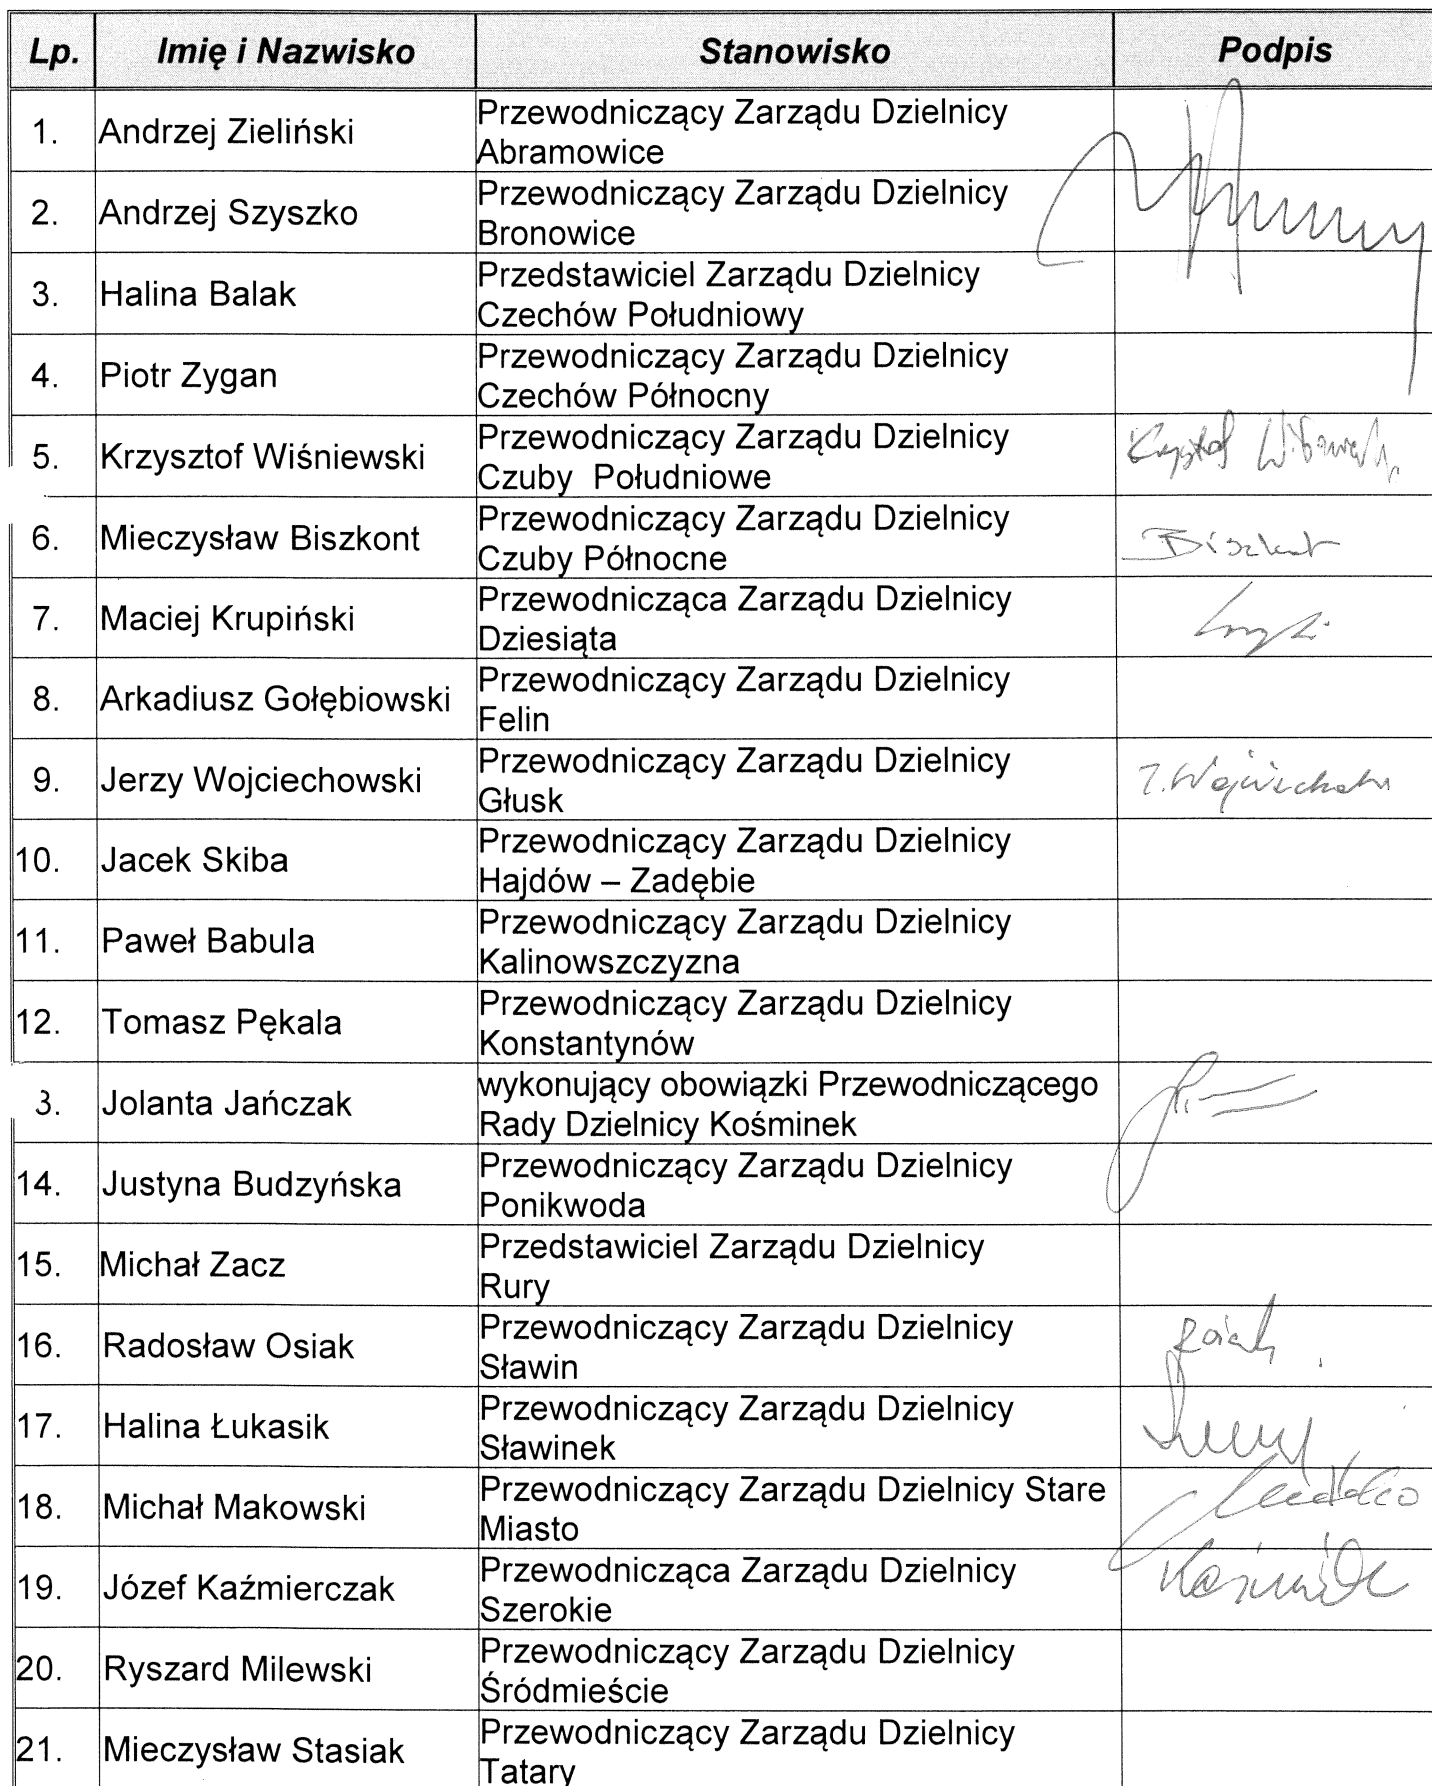 Lp. Imię i Nazwisko Stanowisko Podpis
1. Andrzej Zieliński Przewodniczący Zarządu Dzielnicy
Abramowice
2. Andrzej Szyszko Przewodniczący Zarządu Dzielnicy
Bronowice
3. Halina Balak Przedstawiciel Zarządu Dzielnicy
Czechów Południowy
4. Piotr Zygan Przewodniczący Zarządu Dzielnicy
Czechów Północny
5. Krzysztof Wiśniewski Przewodniczący Zarządu Dzielnicy
Czuby Południowe
6. Mieczysław Biszkont Przewodniczący Zarządu Dzielnicy
Czuby Północne
7. Maciej Krupiński Przewodnicząca Zarządu Dzielnicy
Dziesiąta
8. Arkadiusz Gołębiowski Przewodniczący Zarządu Dzielnicy
Felin
9. Jerzy Wojciechowski Przewodniczący Zarządu Dzielnicy
Głusk
10. Jacek Skiba Przewodniczący Zarządu Dzielnicy
Hajdów – Zadębie
11. Paweł Babula Przewodniczący Zarządu Dzielnicy
Kalinowszczyzna
12. Tomasz Pękala Przewodniczący Zarządu Dzielnicy
Konstantynów
3. Jolanta Jańczak wykonujący obowiązki Przewodniczącego
Rady Dzielnicy Kośminek
14. Justyna Budzyńska Przewodniczący Zarządu Dzielnicy
Ponikwoda
15. Michał Zacz Przedstawiciel Zarządu Dzielnicy
Rury
16. Radosław Osiak Przewodniczący Zarządu Dzielnicy
Sławin
17. Halina Łukasik Przewodniczący Zarządu Dzielnicy
Sławinek
18. Michał Makowski Przewodniczący Zarządu Dzielnicy Stare
Miasto
19. Józef Kaźmierczak Przewodnicząca Zarządu Dzielnicy
Szerokie
20. Ryszard Milewski Przewodniczący Zarządu Dzielnicy
Śródmieście
21. Mieczysław Stasiak Przewodniczący Zarządu Dzielnicy
Tatary